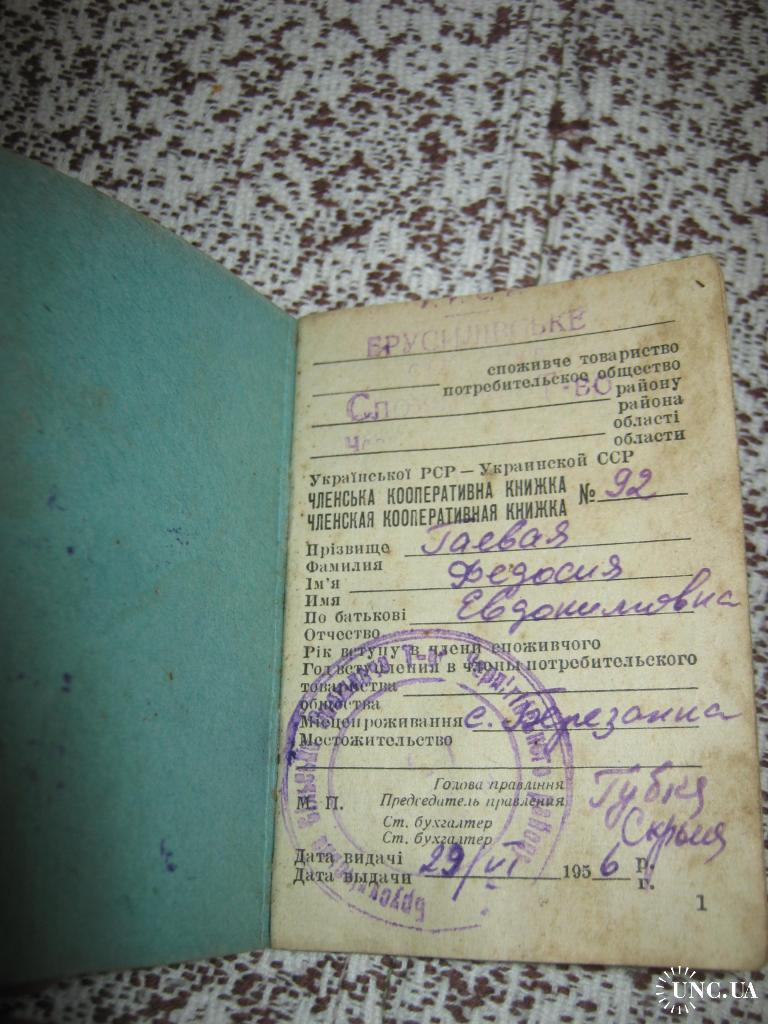 БРУСИЛІВСЬКЕ
споживче товариство
потребительское общество
району
района
області
области
Української РСР — Украинской ССР
ЧЛЕНСЬКА КООПЕРАТИВНА КНИЖКА
ЧЛЕНСКАЯ КООПЕРАТИВНАЯ КНИЖКА № 92
Прізвище Гаевая
Фамилия
Ім'я Федосия
Имя
По батькові Евдокимовна
Отчество
Рік вступу в члени споживчого
Год вступления в члены потребительского
товариства
общества
Місцепроживання с. Березанка
Местожительство
Голова правління Губка
М. П. Председатель правления
Ст. бухгалтер
Ст. бухгалтер
Дата видачі 29/VI 1956 р.
Дата выдачи г.
1
UNC.UA